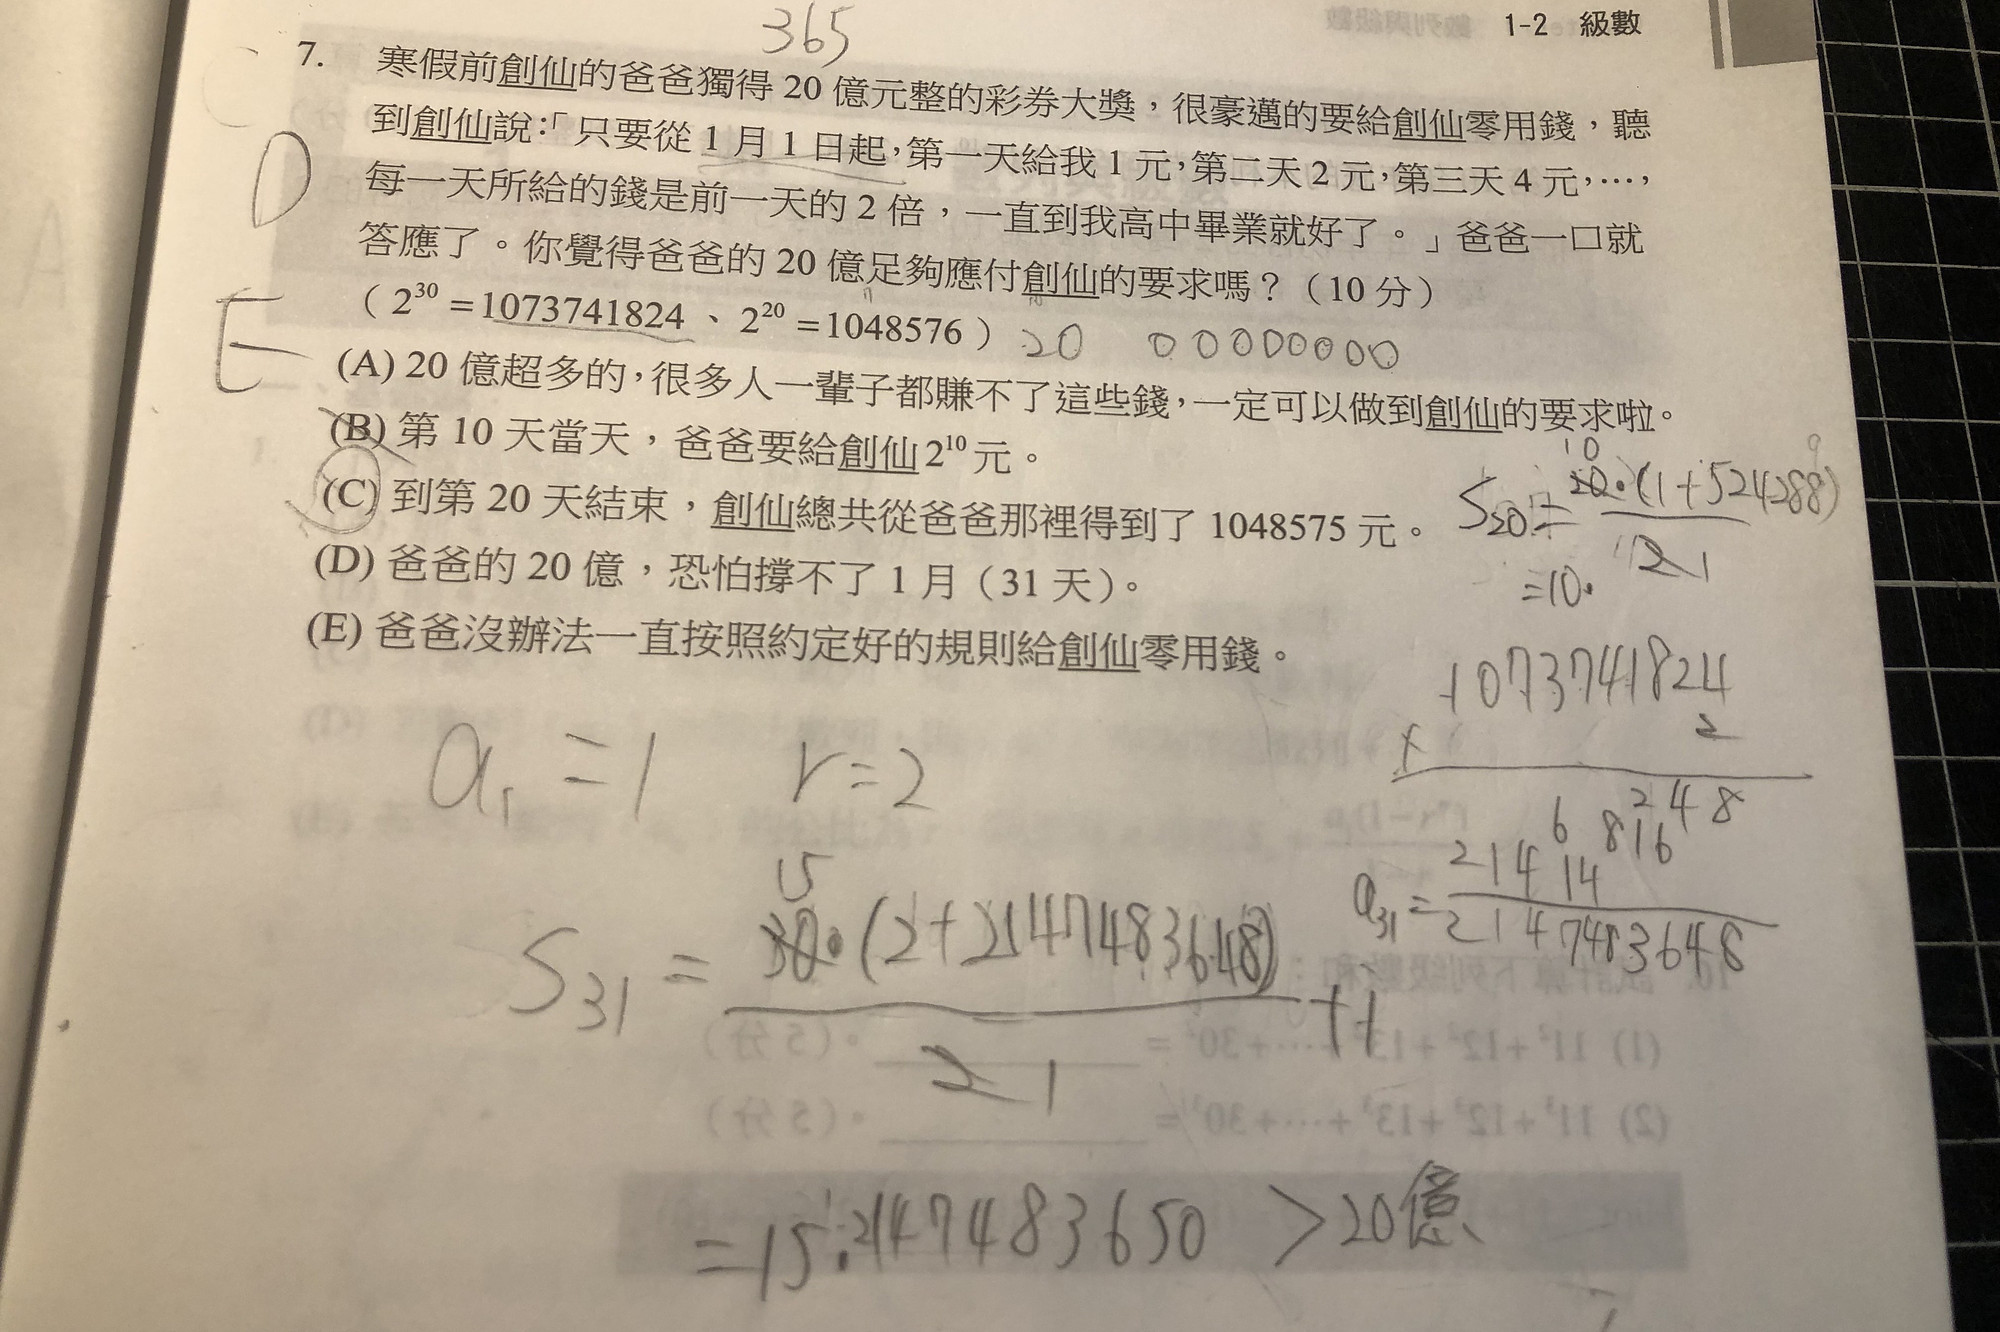 365
1-2 級數
7. 寒假前創仙的爸爸獨得 20 億元整的彩券大獎，很豪邁的要給創仙零用錢，聽
到創仙說：「只要從 1 月 1 日起，第一天給我 1 元，第二天 2 元，第三天 4 元，…，
D
每一天所給的錢是前一天的 2 倍，一直到我高中畢業就好了。」爸爸一口就
答應了。你覺得爸爸的 20 億足夠應付創仙的要求嗎？（10 分）
E
（2³⁰ =1073741824、2²⁰ =1048576）
20 00000000
(A) 20 億超多的，很多人一輩子都賺不了這些錢，一定可以做到創仙的要求啦。
(B) 第 10 天當天，爸爸要給創仙 2¹⁰ 元。
(C) 到第 20 天結束，創仙總共從爸爸那裡得到了 1048575 元。
(D) 爸爸的 20 億，恐怕撐不了 1 月（31 天）。
(E) 爸爸沒辦法一直按照約定好的規則給創仙零用錢。
10
S20 = 20·(1+524288)
2 1
=10·
1073741824
× 2
2 4 8
6 8 16
2 1 4 14
a31 = 2147483648
a1 = 1 r = 2
15
S31 = 30·(2+2147483648) +1
2 1
=15·2147483650 > 20億